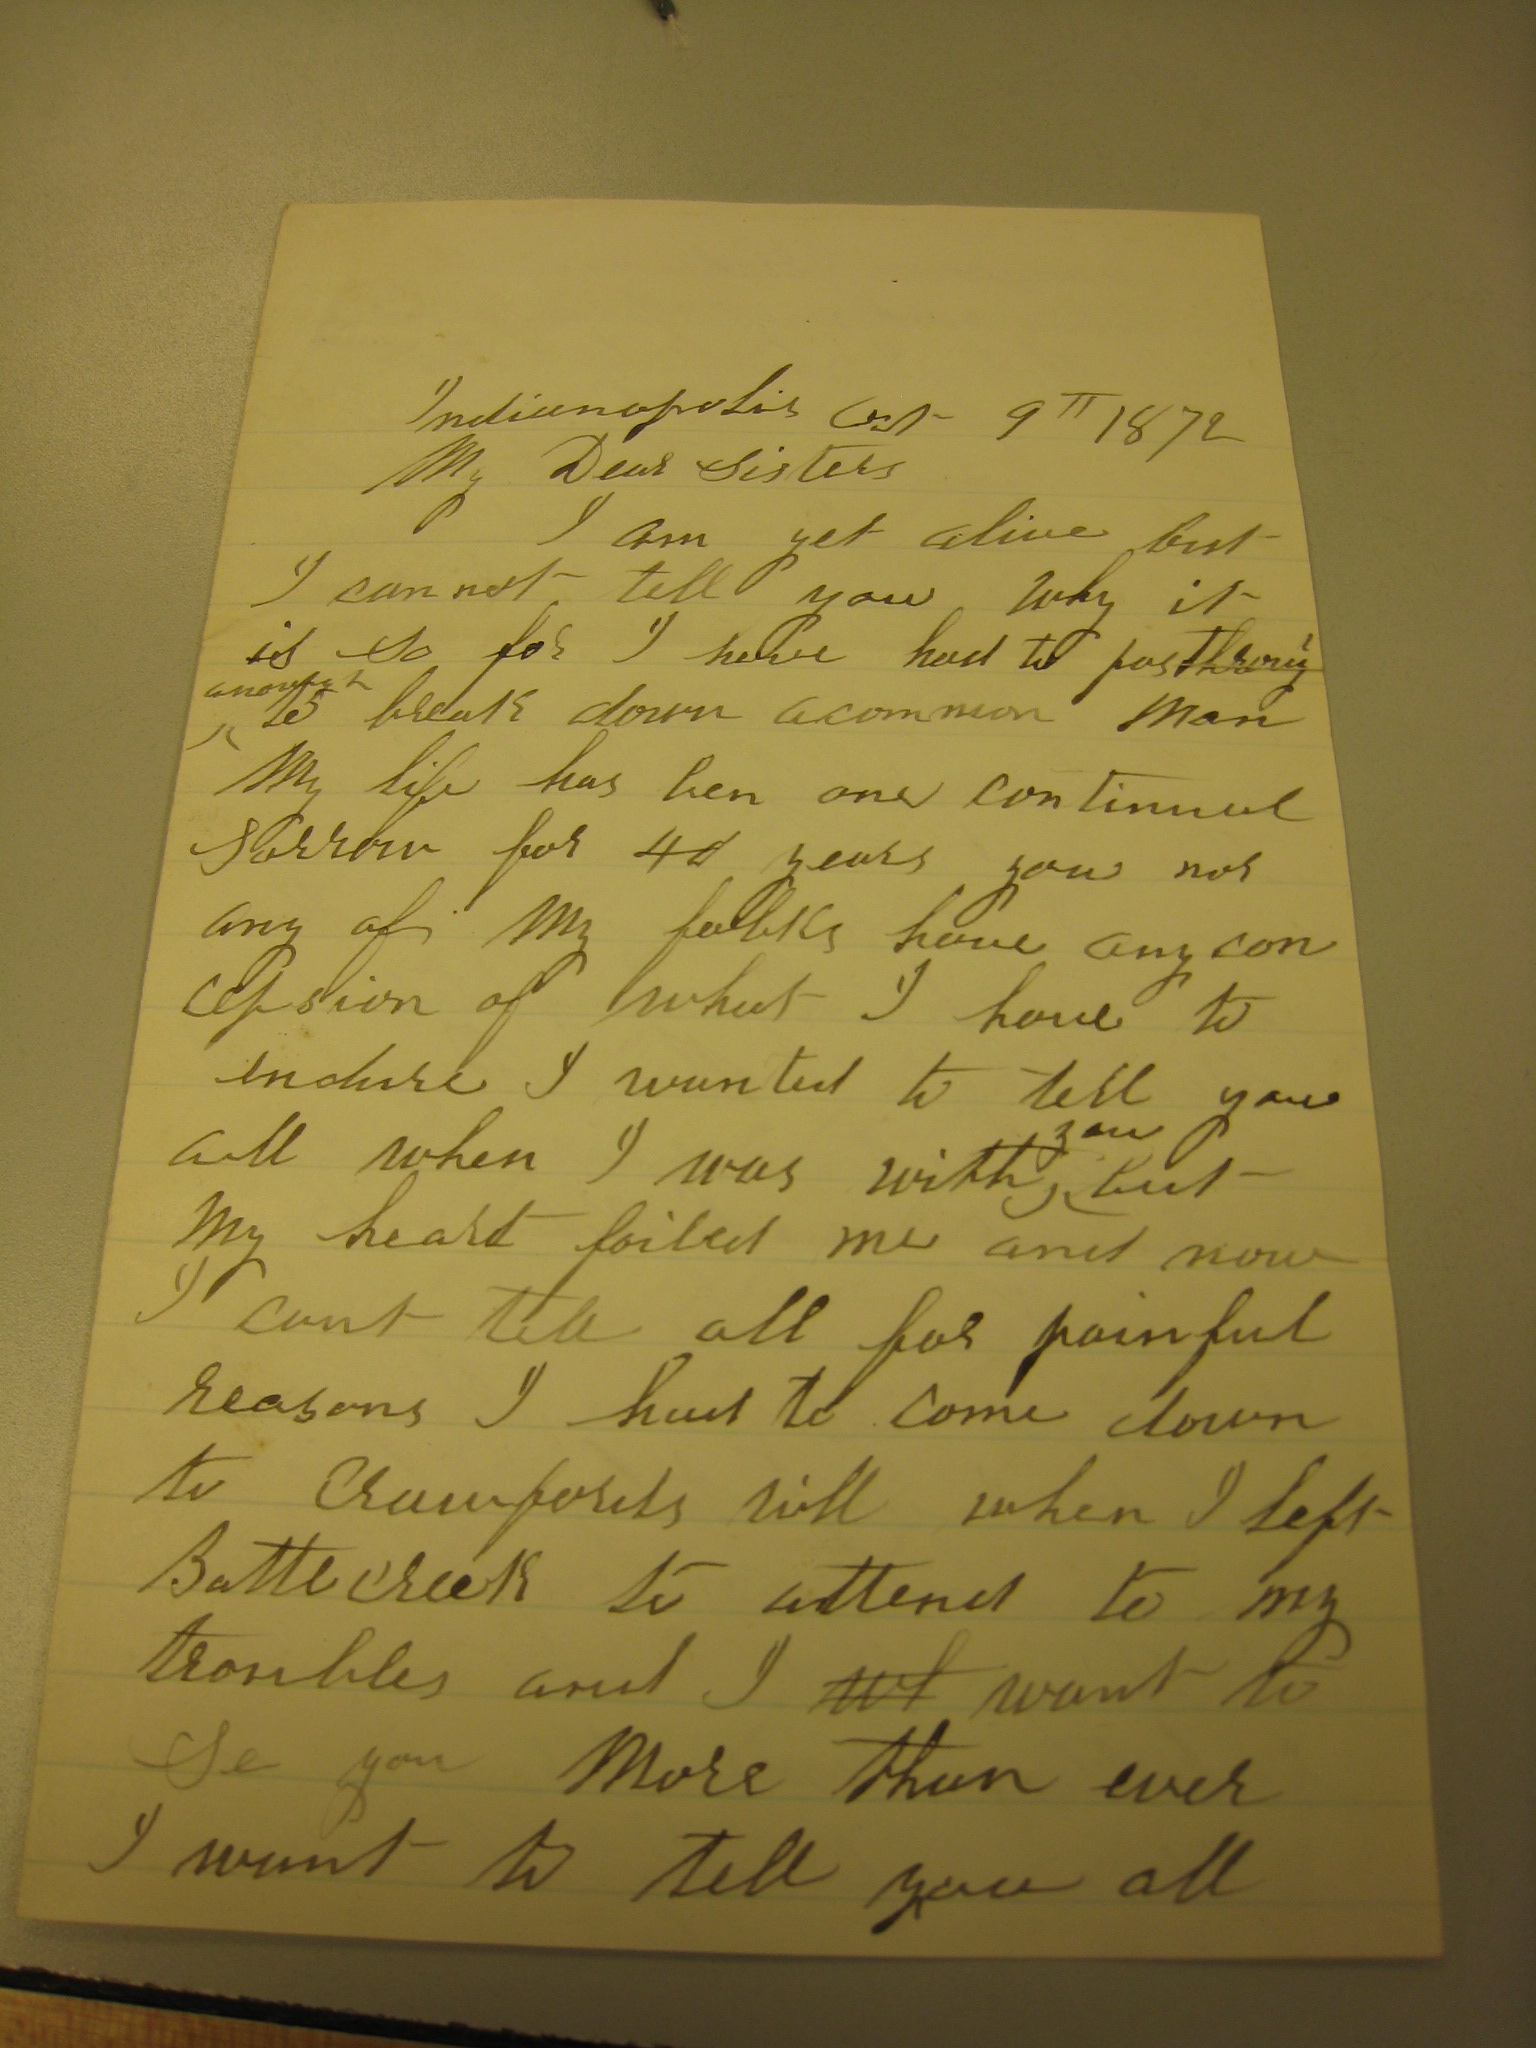 Indianapolis Oct 9th 1872
My Dear Sisters
I am yet alive but
I cannot tell you why it
is so for I have had to pas throug
anough to break down a common Man
My life has ben one continuel
Sorrow for 40 years you nor
any of My folks have any con
cepsion of what I have to
endure I wanted to tell you
all when I was with you but
My heart failed me and now
I cant tell all for painful
reasons I had to come down
to Crawfords vill when I left
Battle creek to attend to my
troubles and I want to
Se you More than ever
I want to tell you all